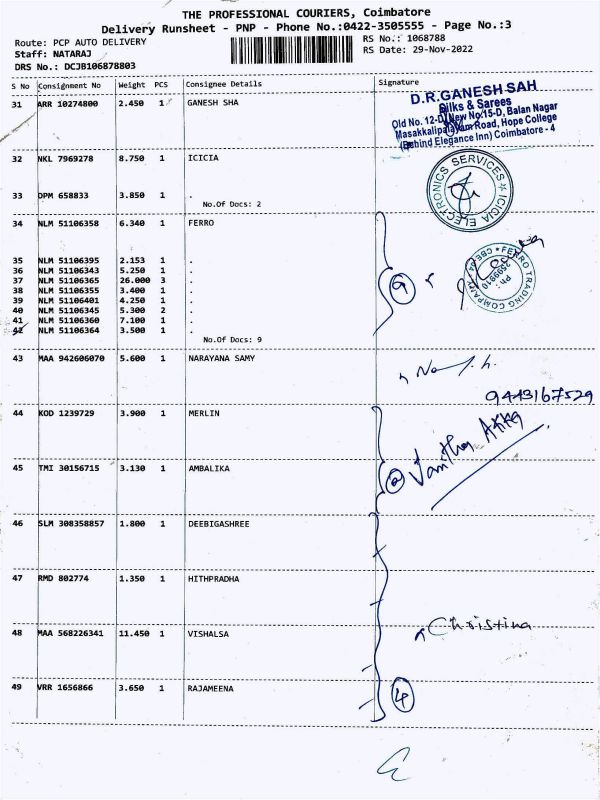 THE PROFESSIONAL COURIERS, Coimbatore
Delivery Runsheet - PNP - Phone No.:0422-3505555 - Page No.:3
Route: PCP AUTO DELIVERY
RS No.: 1068788
Staff: NATARAJ
RS Date: 29-Nov-2022
DRS No.: DCJB106878803
S No Consignment No Weight PCS Consignee Details Signature
31 ARR 10274800 2.450 1 GANESH SHA
D.R.GANESH SAH
Silks & Sarees
Old No. 12-D, New No.15-D, Balan Nagar
Masakkalipalayam Road, Hope College
(Behind Elegance Inn) Coimbatore - 4
32 NKL 7969278 8.750 1 ICICIA
ICICIA ELECTRONICS SERVICES
33 DPM 658833 3.850 1 .
No.Of Docs: 2
34 NLM 51106358 6.340 1 FERRO
35 NLM 51106395 2.153 1 .
36 NLM 51106343 5.250 1 .
37 NLM 51106365 26.000 3 .
38 NLM 51106355 3.400 1 .
39 NLM 51106401 4.250 1 .
40 NLM 51106345 5.300 2 .
41 NLM 51106360 7.100 1 .
42 NLM 51106364 3.500 1 .
No.Of Docs: 9
9
FERRO TRADING COMPANY
CBE-04
Ph.:
2599910
43 MAA 942606070 5.600 1 NARAYANA SAMY
9443167529
44 KOD 1239729 3.900 1 MERLIN
Vanitha AKKA
45 TMI 30156715 3.130 1 AMBALIKA
2
46 SLM 308358857 1.800 1 DEEBIGASHREE
47 RMD 802774 1.350 1 HITHPRADHA
Christina
48 MAA 568226341 11.450 1 VISHALSA
49 VRR 1656866 3.650 1 RAJAMEENA
4